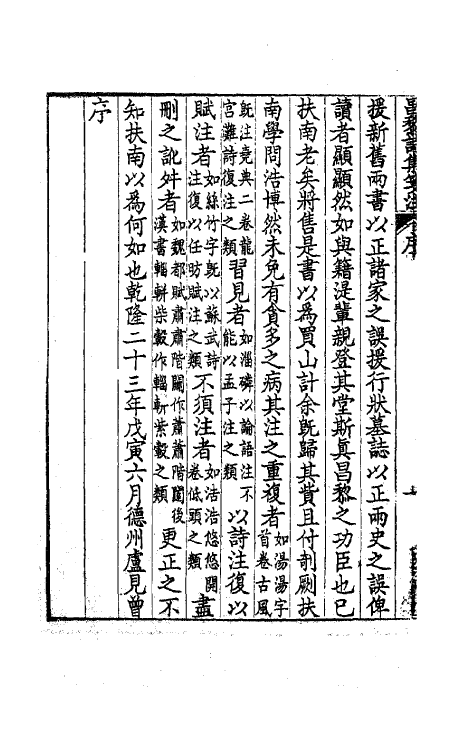 援新舊兩書以正諸家之誤援行狀墓誌以正兩史之誤俾
讀者顯顯然如與籍湜輩親登其堂斯眞昌黎之功臣也已
扶南老矣將售是書以為買山計余旣歸其貲且付剞劂扶
南學問浩博然未免有貪多之病其注之重複者如湯湯字首卷古風
旣注堯典二卷龍宮灘詩復注之類習見者如淄磷以論語注不能以孟子注之類以詩注復以
賦注者如絲竹字旣以蘇武詩注復以任昉賦注之類不須注者如浩浩悠悠開卷低頭之類盡
刪之訛舛者如魏都賦肅肅階闥作蕭蕭階闥後漢書輜軿柴轂作輜軿紫轂之類更正之不
知扶南以為何如也乾隆二十三年戊寅六月德州盧見曾
序